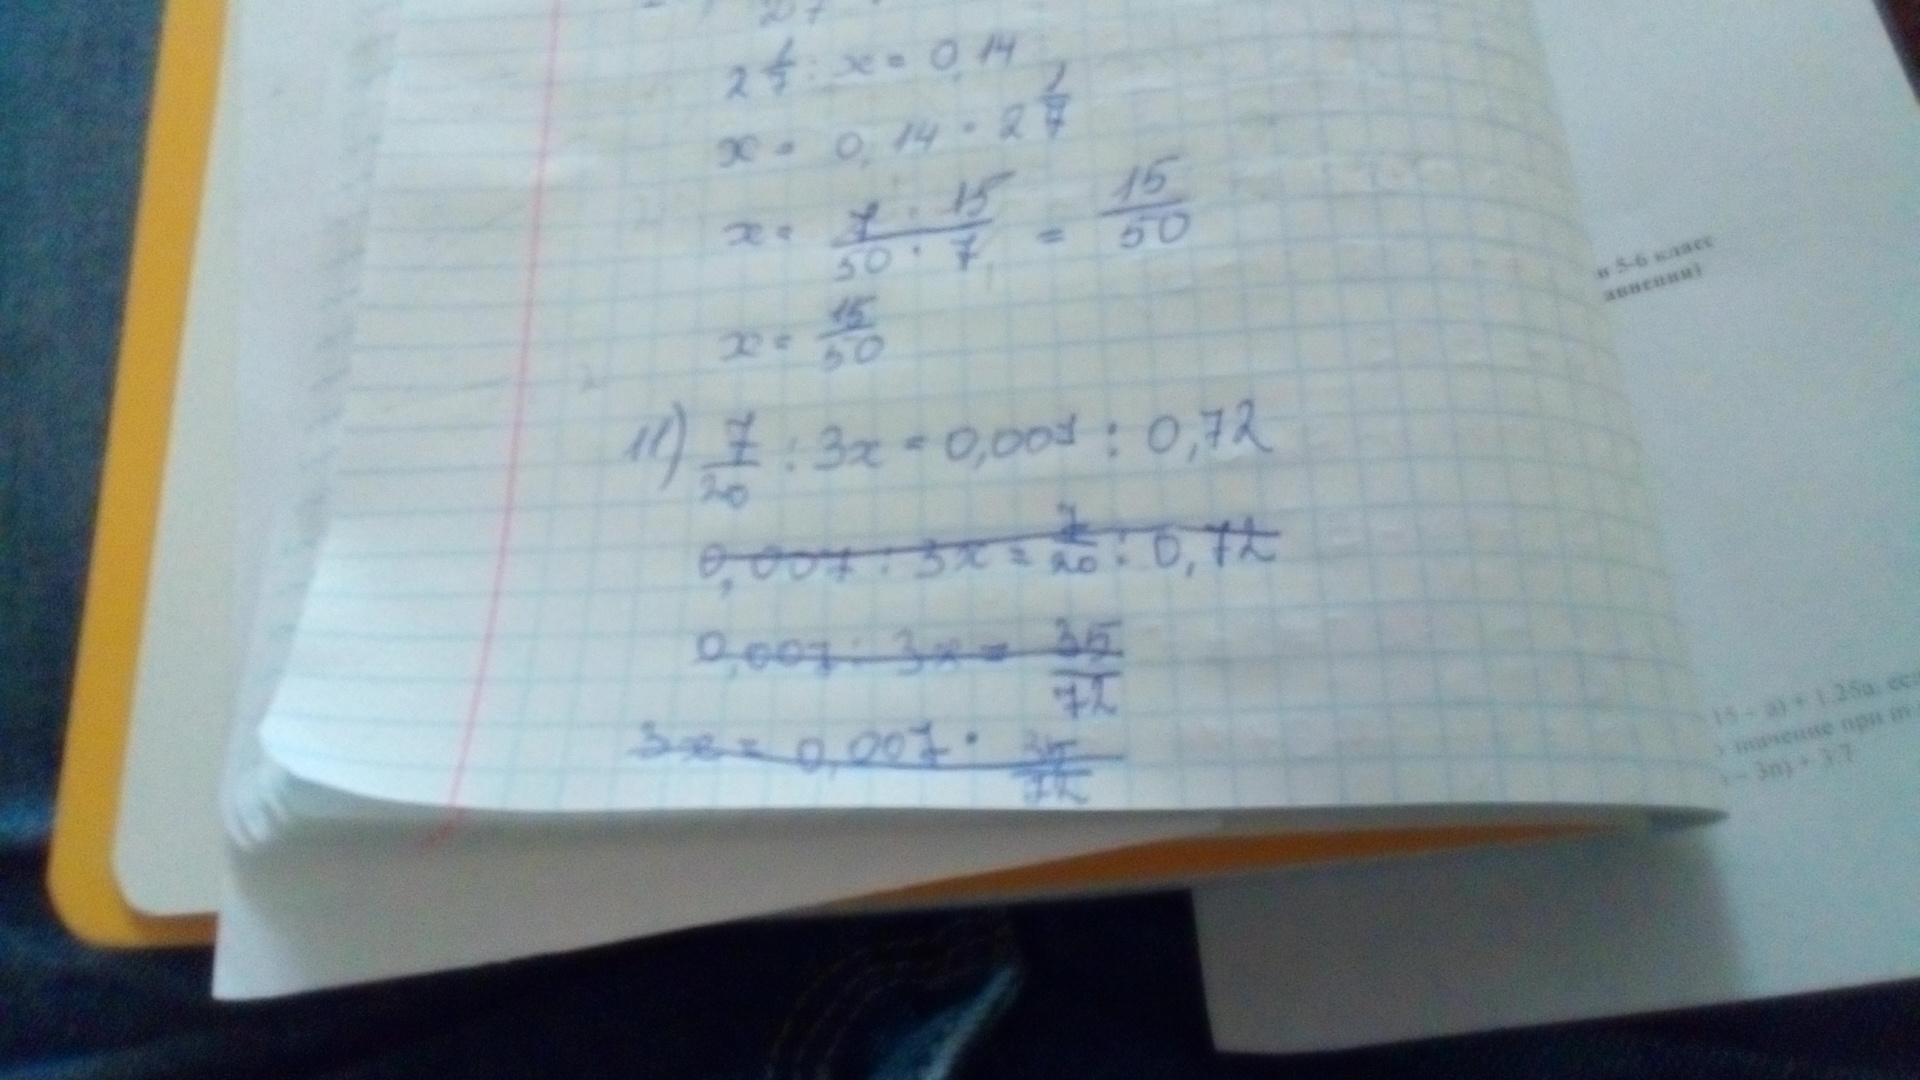 27
2 1/7 : x = 0,14
x = 0,14 · 2 1/7
x = 7 · 15 / 50 · 7 = 15/50
x = 15/50
11) 7/20 : 3x = 0,007 : 0,72
0,007 : 3x = 7/20 : 0,72
0,007 : 3x = 35/72
3x = 0,007 · 35/72
и 5-6 класс
авнении)
15 – а) + 1,25а, есл
значение при m
– 3n) + 3,7